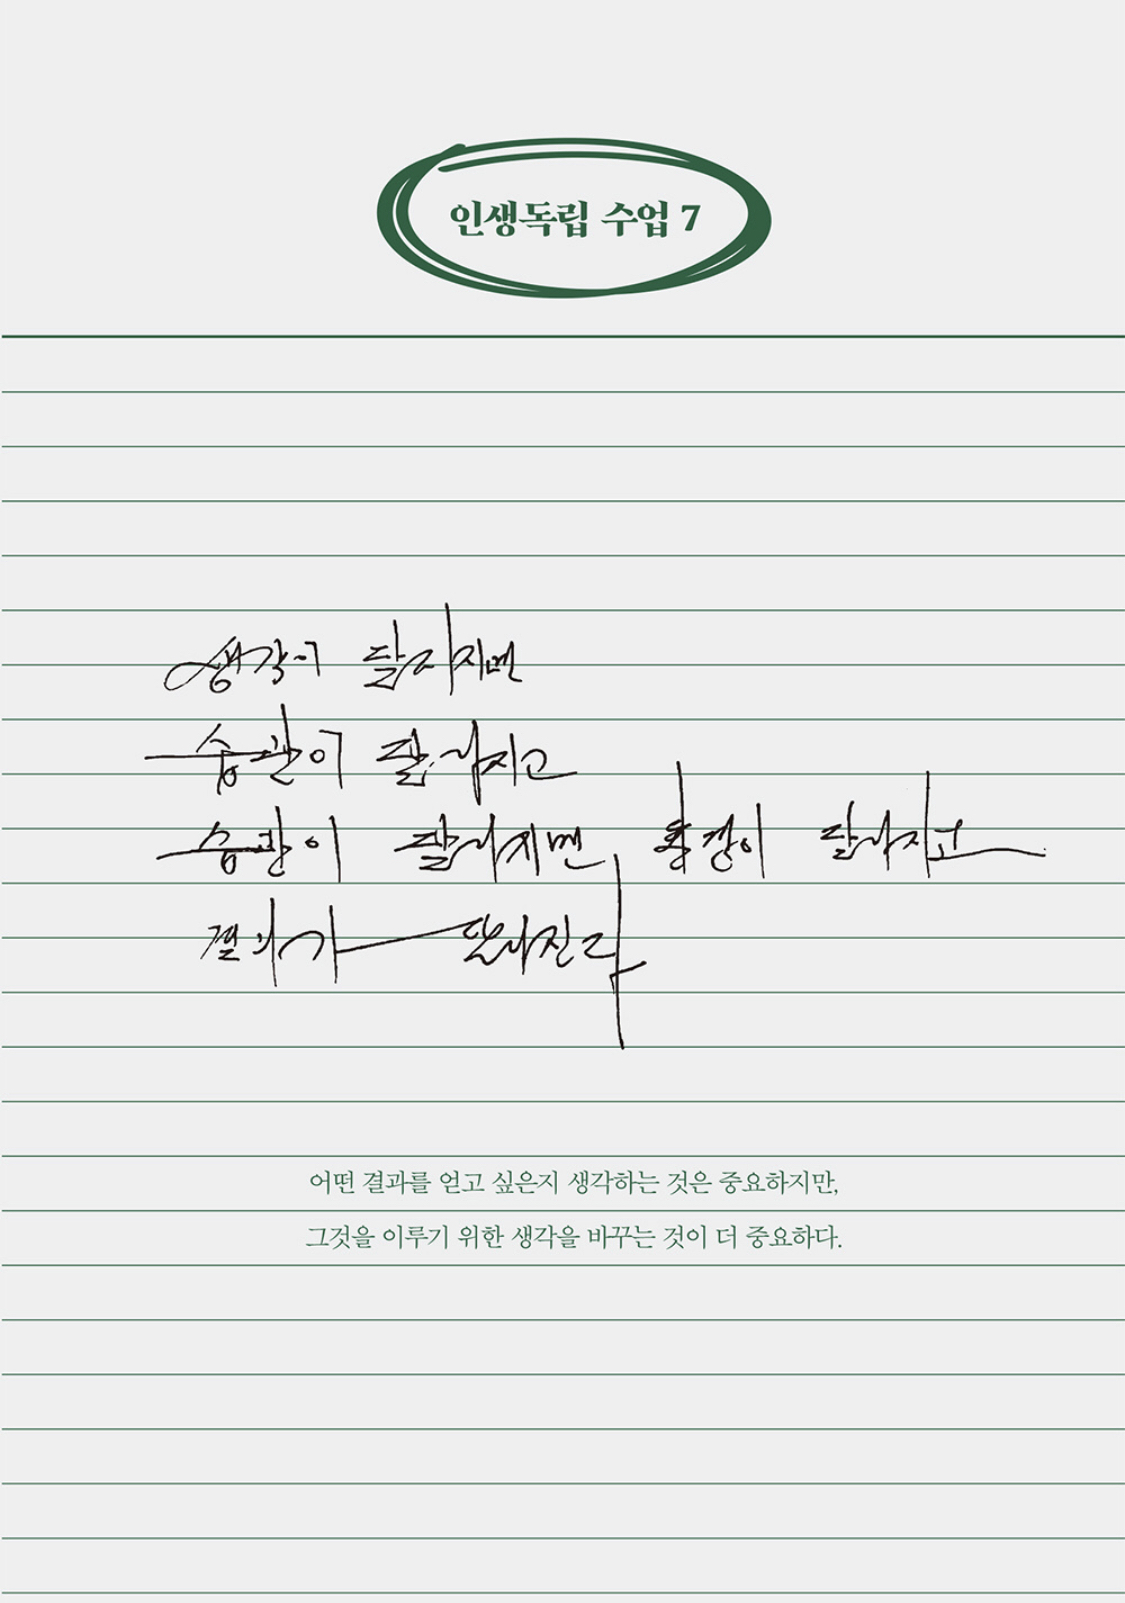 인생독립 수업 7
생각이 달라지면
습관이 달라지고
습관이 달라지면, 환경이 달라지고
결과가 달라진다
어떤 결과를 얻고 싶은지 생각하는 것은 중요하지만,
그것을 이루기 위한 생각을 바꾸는 것이 더 중요하다.